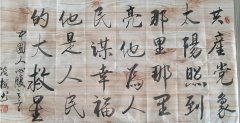 共產党象
太陽照到
那里那里
亮他為人
民謀幸福
他是人民
的大救星
中国人